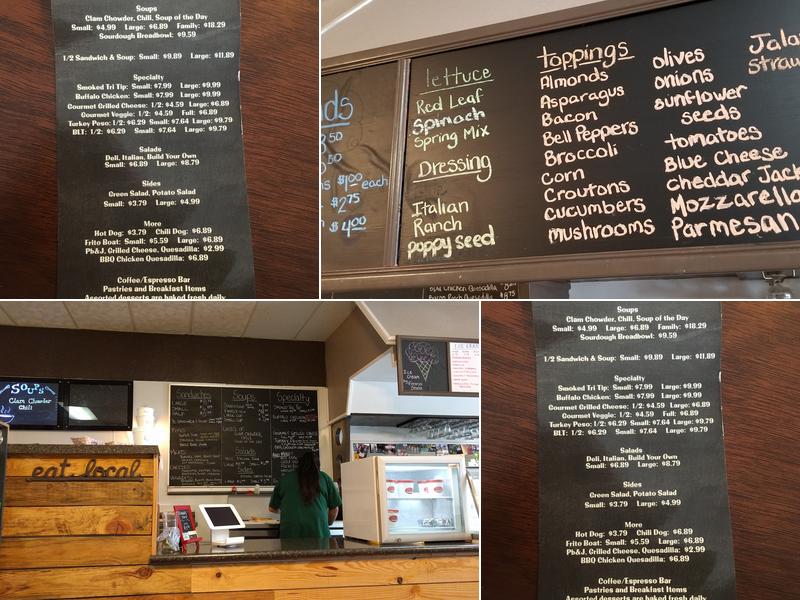 Soups
Clam Chowder, Chili, Soup of the Day
Small: $4.99 Large: $6.89 Family: $18.29
Sourdough Breadbowl: $9.59
1/2 Sandwich & Soup: Small: $9.89 Large: $11.89
Specialty
Smoked Tri Tip: Small: $7.99 Large: $9.99
Buffalo Chicken: Small: $7.99 Large: $9.99
Gourmet Grilled Cheese: 1/2: $4.59 Large: $6.89
Gourmet Veggie: 1/2: $4.59 Full: $6.89
Turkey Peso: 1/2: $6.29 Small: $7.64 Large: $9.79
BLT: 1/2: $6.29 Small: $7.64 Large: $9.79
Salads
Deli, Italian, Build Your Own
Small: $6.89 Large: $8.79
Sides
Green Salad, Potato Salad
Small: $3.79 Large: $4.99
More
Hot Dog: $3.79 Chili Dog: $6.89
Frito Boat: Small: $5.59 Large: $6.89
Pb&J, Grilled Cheese, Quesadilla: $2.99
BBQ Chicken Quesadilla: $6.89
Coffee/Espresso Bar
Pastries and Breakfast Items
Assorted desserts are baked fresh daily
ds
50
50
$1.00 each
$2.75
$4.00
lettuce
Red Leaf
Spinach
Spring Mix
Dressing
Italian
Ranch
poppyseed
toppings
Almonds
Asparagus
Bacon
Bell Peppers
Broccoli
Corn
Croutons
Cucumbers
mushrooms
olives
onions
sunflower
seeds
tomatoes
Blue Cheese
Cheddar Jack
Mozzarella
Parmesan
Jala
straw
Chicken Quesadilla
Bacon Ranch Quesadilla
Soups
Clam Chowder
Chili
eat local
Sandwiches
Soups
Specialty
Salads
Sides
Ice
Cream
Soups
Clam Chowder, Chili, Soup of the Day
Small: $4.99 Large: $6.89 Family: $18.29
Sourdough Breadbowl: $9.59
1/2 Sandwich & Soup: Small: $9.89 Large: $11.89
Specialty
Smoked Tri Tip: Small: $7.99 Large: $9.99
Buffalo Chicken: Small: $7.99 Large: $9.99
Gourmet Grilled Cheese: 1/2: $4.59 Large: $6.89
Gourmet Veggie: 1/2: $4.59 Full: $6.89
Turkey Peso: 1/2: $6.29 Small: $7.64 Large: $9.79
BLT: 1/2: $6.29 Small: $7.64 Large: $9.79
Salads
Deli, Italian, Build Your Own
Small: $6.89 Large: $8.79
Sides
Green Salad, Potato Salad
Small: $3.79 Large: $4.99
More
Hot Dog: $3.79 Chili Dog: $6.89
Frito Boat: Small: $5.59 Large: $6.89
Pb&J, Grilled Cheese, Quesadilla: $2.99
BBQ Chicken Quesadilla: $6.89
Coffee/Espresso Bar
Pastries and Breakfast Items
Assorted desserts are baked fresh daily